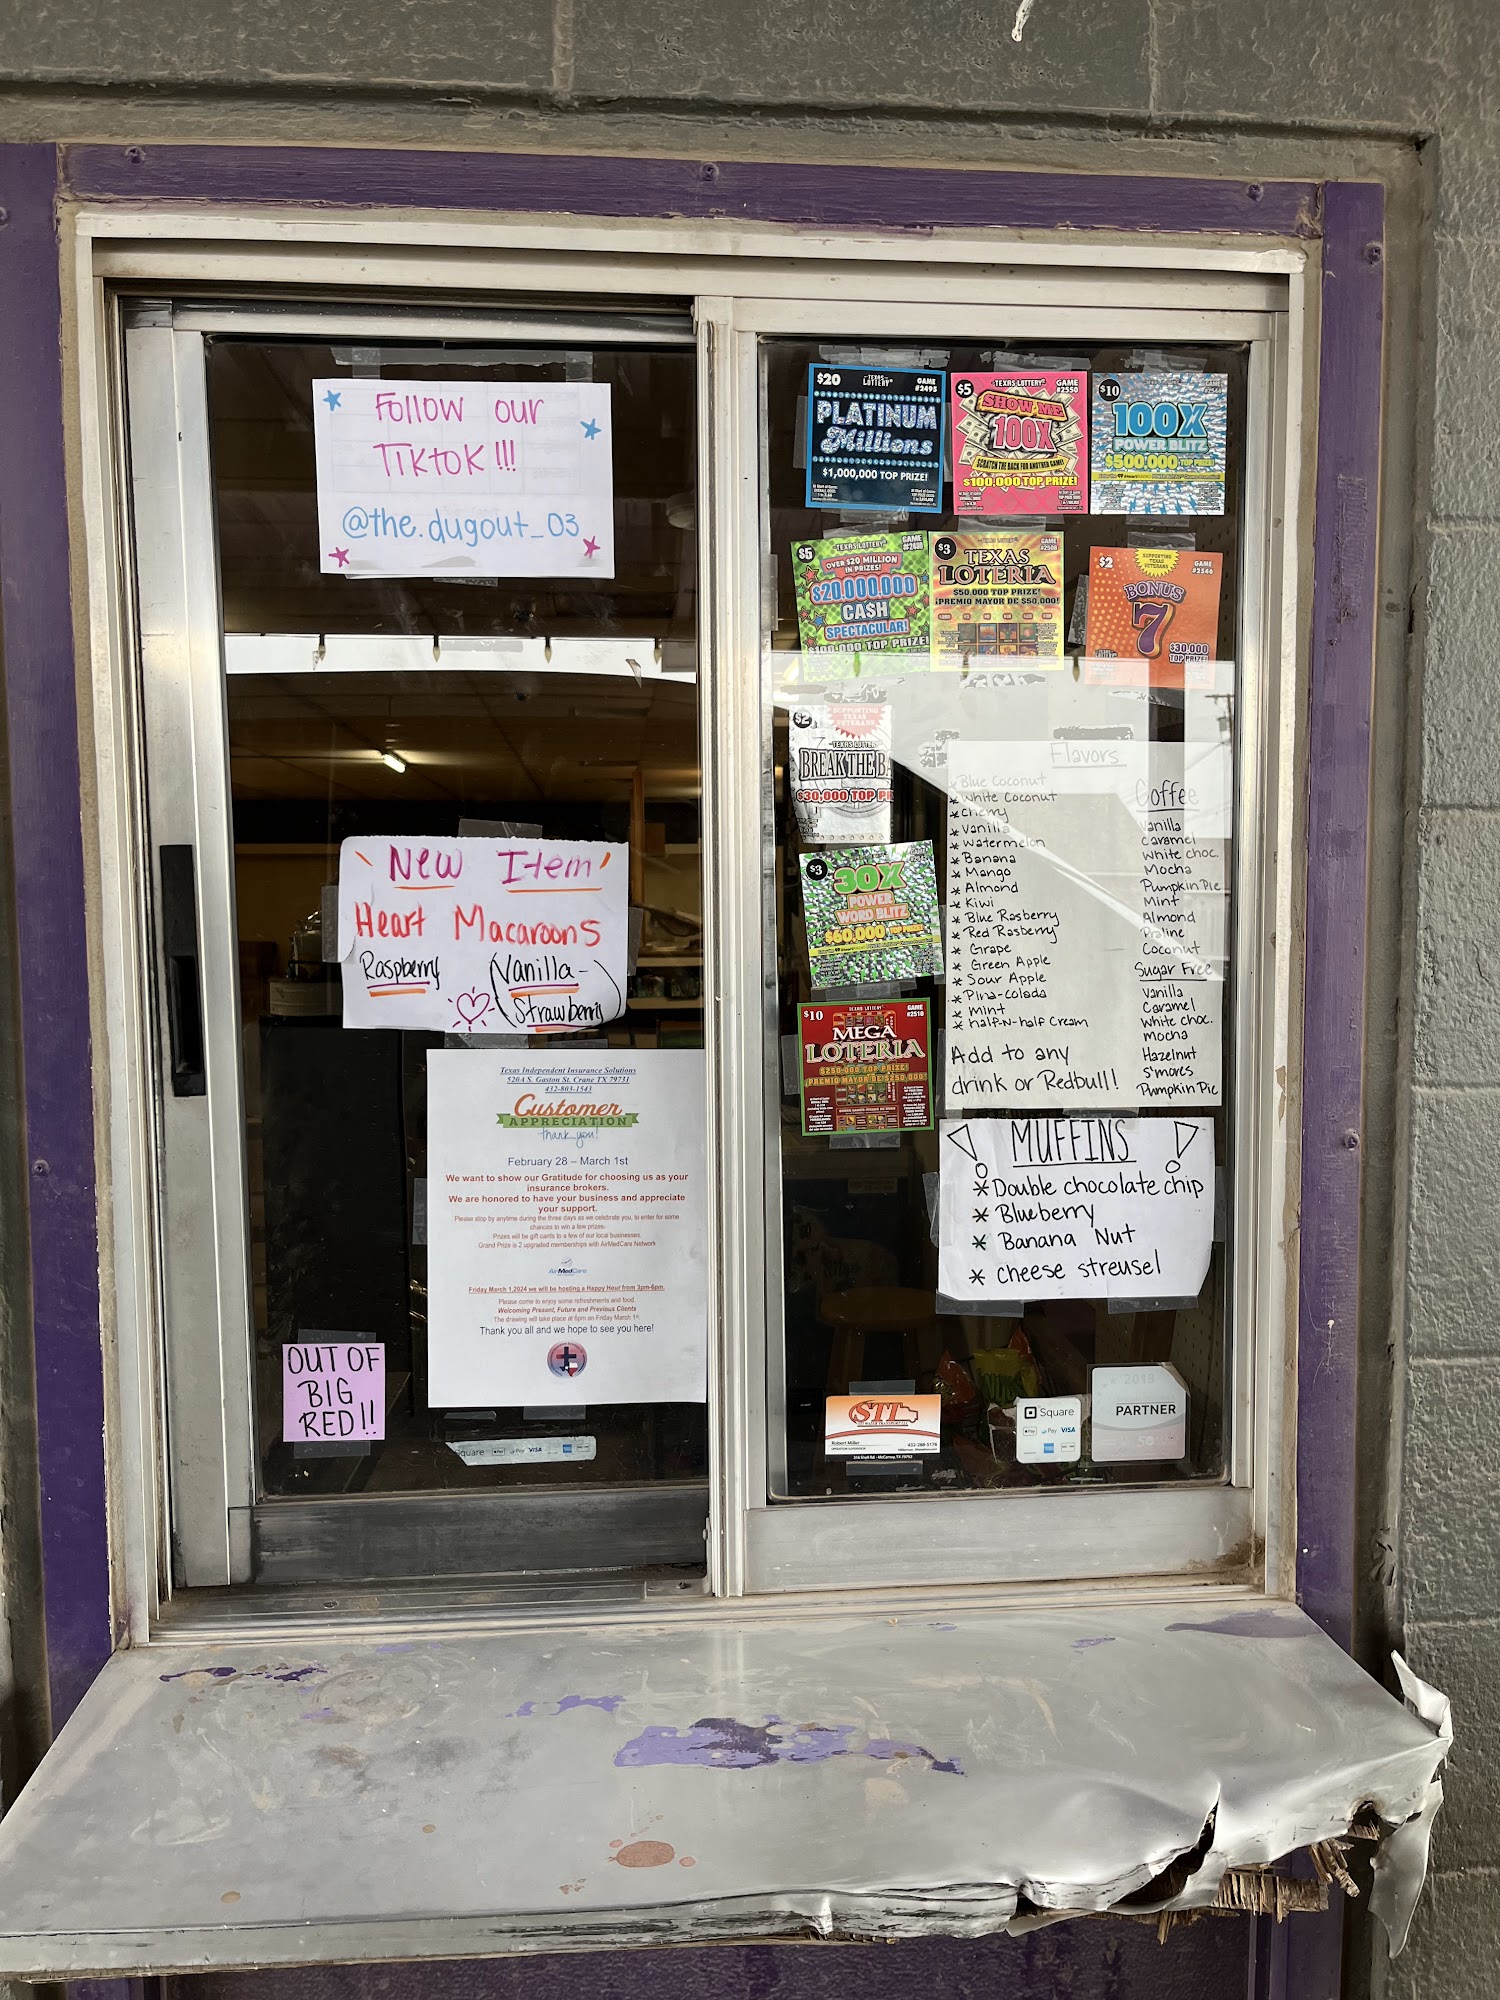 Follow our
TikTok!!!
@the.dugout_03
New Item
Heart Macaroons
Raspberry
(Vanilla-
Strawberry)
Texas Independent Insurance Solutions
520A S. Gaston St. Crane TX 79731
432-803-1543
Customer
APPRECIATION
thank you!
February 28 – March 1st
We want to show our Gratitude for choosing us as your
insurance brokers.
We are honored to have your business and appreciate
your support.
Please stop by anytime during the three days as we celebrate you, to enter for some
chances to win a few prizes.
Prizes will be gift cards to a few of our local businesses.
Grand Prize is 2 upgraded memberships with AirMedCare Network
AirMedCare
Friday March 1,2024 we will be hosting a Happy Hour from 3pm-6pm.
Please come to enjoy some refreshments and food.
Welcoming Present, Future and Previous Clients
The drawing will take place at 6pm on Friday March 1st
Thank you all and we hope to see you here!
OUT OF
BIG
RED!!
Square Pay Pay VISA
$20 TEXAS LOTTERY GAME #2495
PLATINUM
Millions
$1,000,000 TOP PRIZE!
$5 TEXAS LOTTERY GAME #2550
SHOW ME
100X
SCRATCH THE BACK FOR ANOTHER GAME!
$100,000 TOP PRIZE!
$10
100X
POWER BLITZ
$500,000 TOP PRIZE!
$5 TEXAS LOTTERY GAME
OVER $20 MILLION
IN PRIZES!
$20,000,000
CA$H
SPECTACULAR!
$100,000 TOP PRIZE!
$3 GAME #2508
TEXAS
LOTERIA
$50,000 TOP PRIZE!
¡PREMIO MAYOR DE $50,000!
$2 SUPPORTING TEXAS VETERANS GAME #2546
BONUS
7
$30,000
TOP PRIZE!
$2 SUPPORTING
TEXAS
VETERANS
TEXAS LOTTE
BREAK THE BA
$30,000 TOP PR
$3
30X
POWER
WORD BLITZ
$60,000 TOP PRIZE!
$10 TEXAS LOTTERY GAME #2510
MEGA
LOTERIA
$250,000 TOP PRIZE!
¡PREMIO MAYOR DE $250,000!
Flavors
* Blue Coconut
* White Coconut
* Cherry
* Vanilla
* Watermelon
* Banana
* Mango
* Almond
* Kiwi
* Blue Rasberry
* Red Rasberry
* Grape
* Green Apple
* Sour Apple
* Pina-colada
* mint
* half-N-half Cream
Add to any
drink or Redbull!
Coffee
Vanilla
Caramel
White choc.
Mocha
Pumpkin Pie
Mint
Almond
Praline
Coconut
Sugar Free
Vanilla
Caramel
White choc.
Mocha
Hazelnut
S'mores
Pumpkin Pie
MUFFINS
* Double chocolate chip
* Blueberry
* Banana Nut
* cheese streusel
STI
Robert Miller 432-288-5176
316 Shell Rd - McCamey, TX 79752
Square
Pay Pay VISA
2018
PARTNER